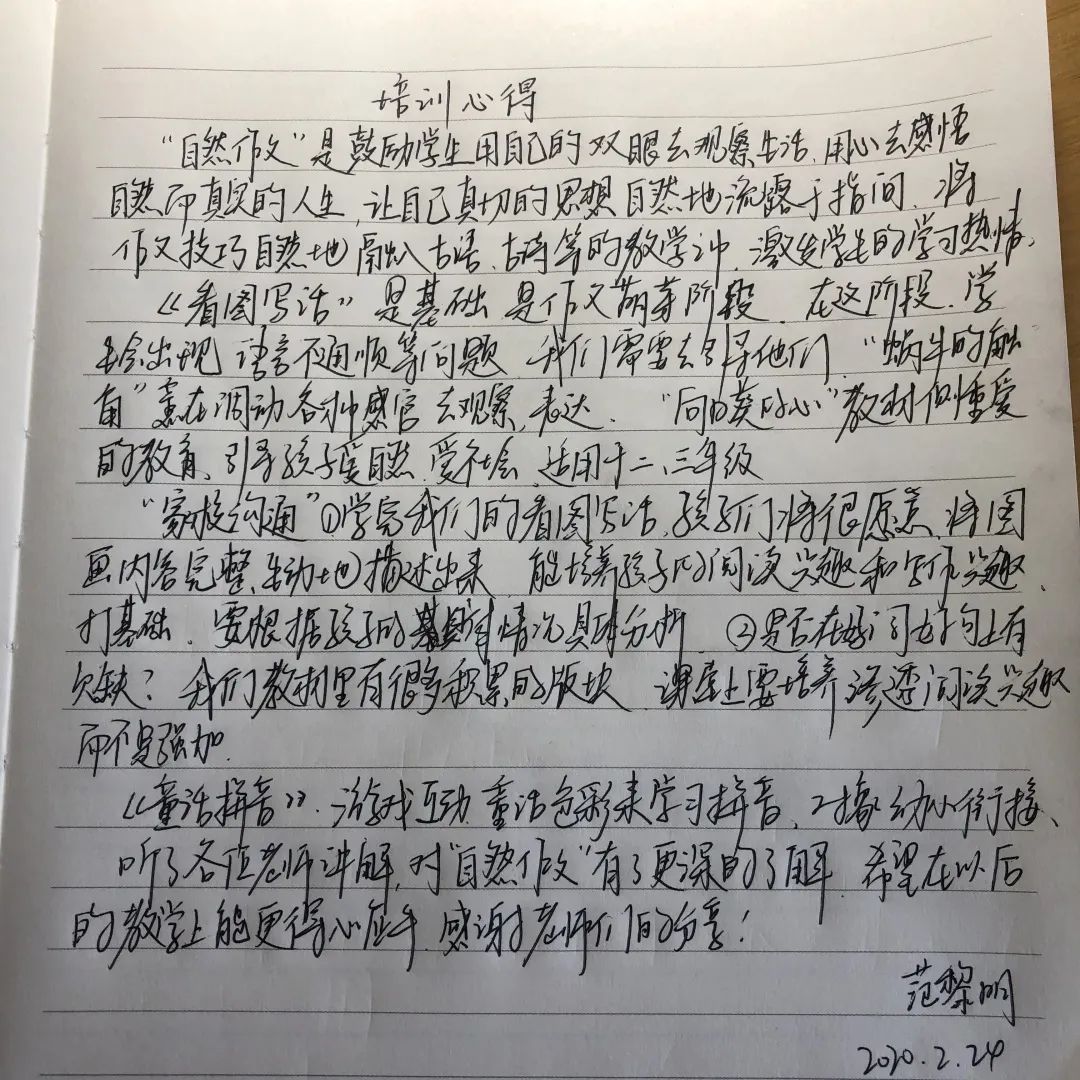 培训心得
“自然作文”是鼓励学生用自己的双眼去观察生活,用心去感悟
自然而真实的人生,让自己真切的思想自然地流露于指间,将
作文技巧自然地融入古语、古诗等的教学中,激发学生的学习热情、
《看图写话》是基础 是作文萌芽阶段、在这阶段、学
生会出现 语言不通顺等问题 我们需要去引导他们 “蜗牛的触
角”意在调动各种感官去观察,表达、“向日葵的心”教材侧重爱
的教育、引导孩子爱自然 爱社会 适用于二、三年级
“家校沟通”①学完我们的看图写话,孩子们将很愿意将图
画内容完整、生动地描述出来 能培养孩子的阅读兴趣和写作兴趣、
打基础、要根据孩子的 情况具体分析、②是否在好词好句上有
欠缺?我们教材里有很多积累的版块 课堂上要培养渗透阅读兴趣
而不是强加.
《童话拼音》.游戏互动 童话色彩来学习拼音、对接幼小衔接、
听了各位老师讲解,对“自然作文”有了更深的了解 希望在以后
的教学上能更得心应手 感谢老师们的分享!
范黎明
2020.2.24